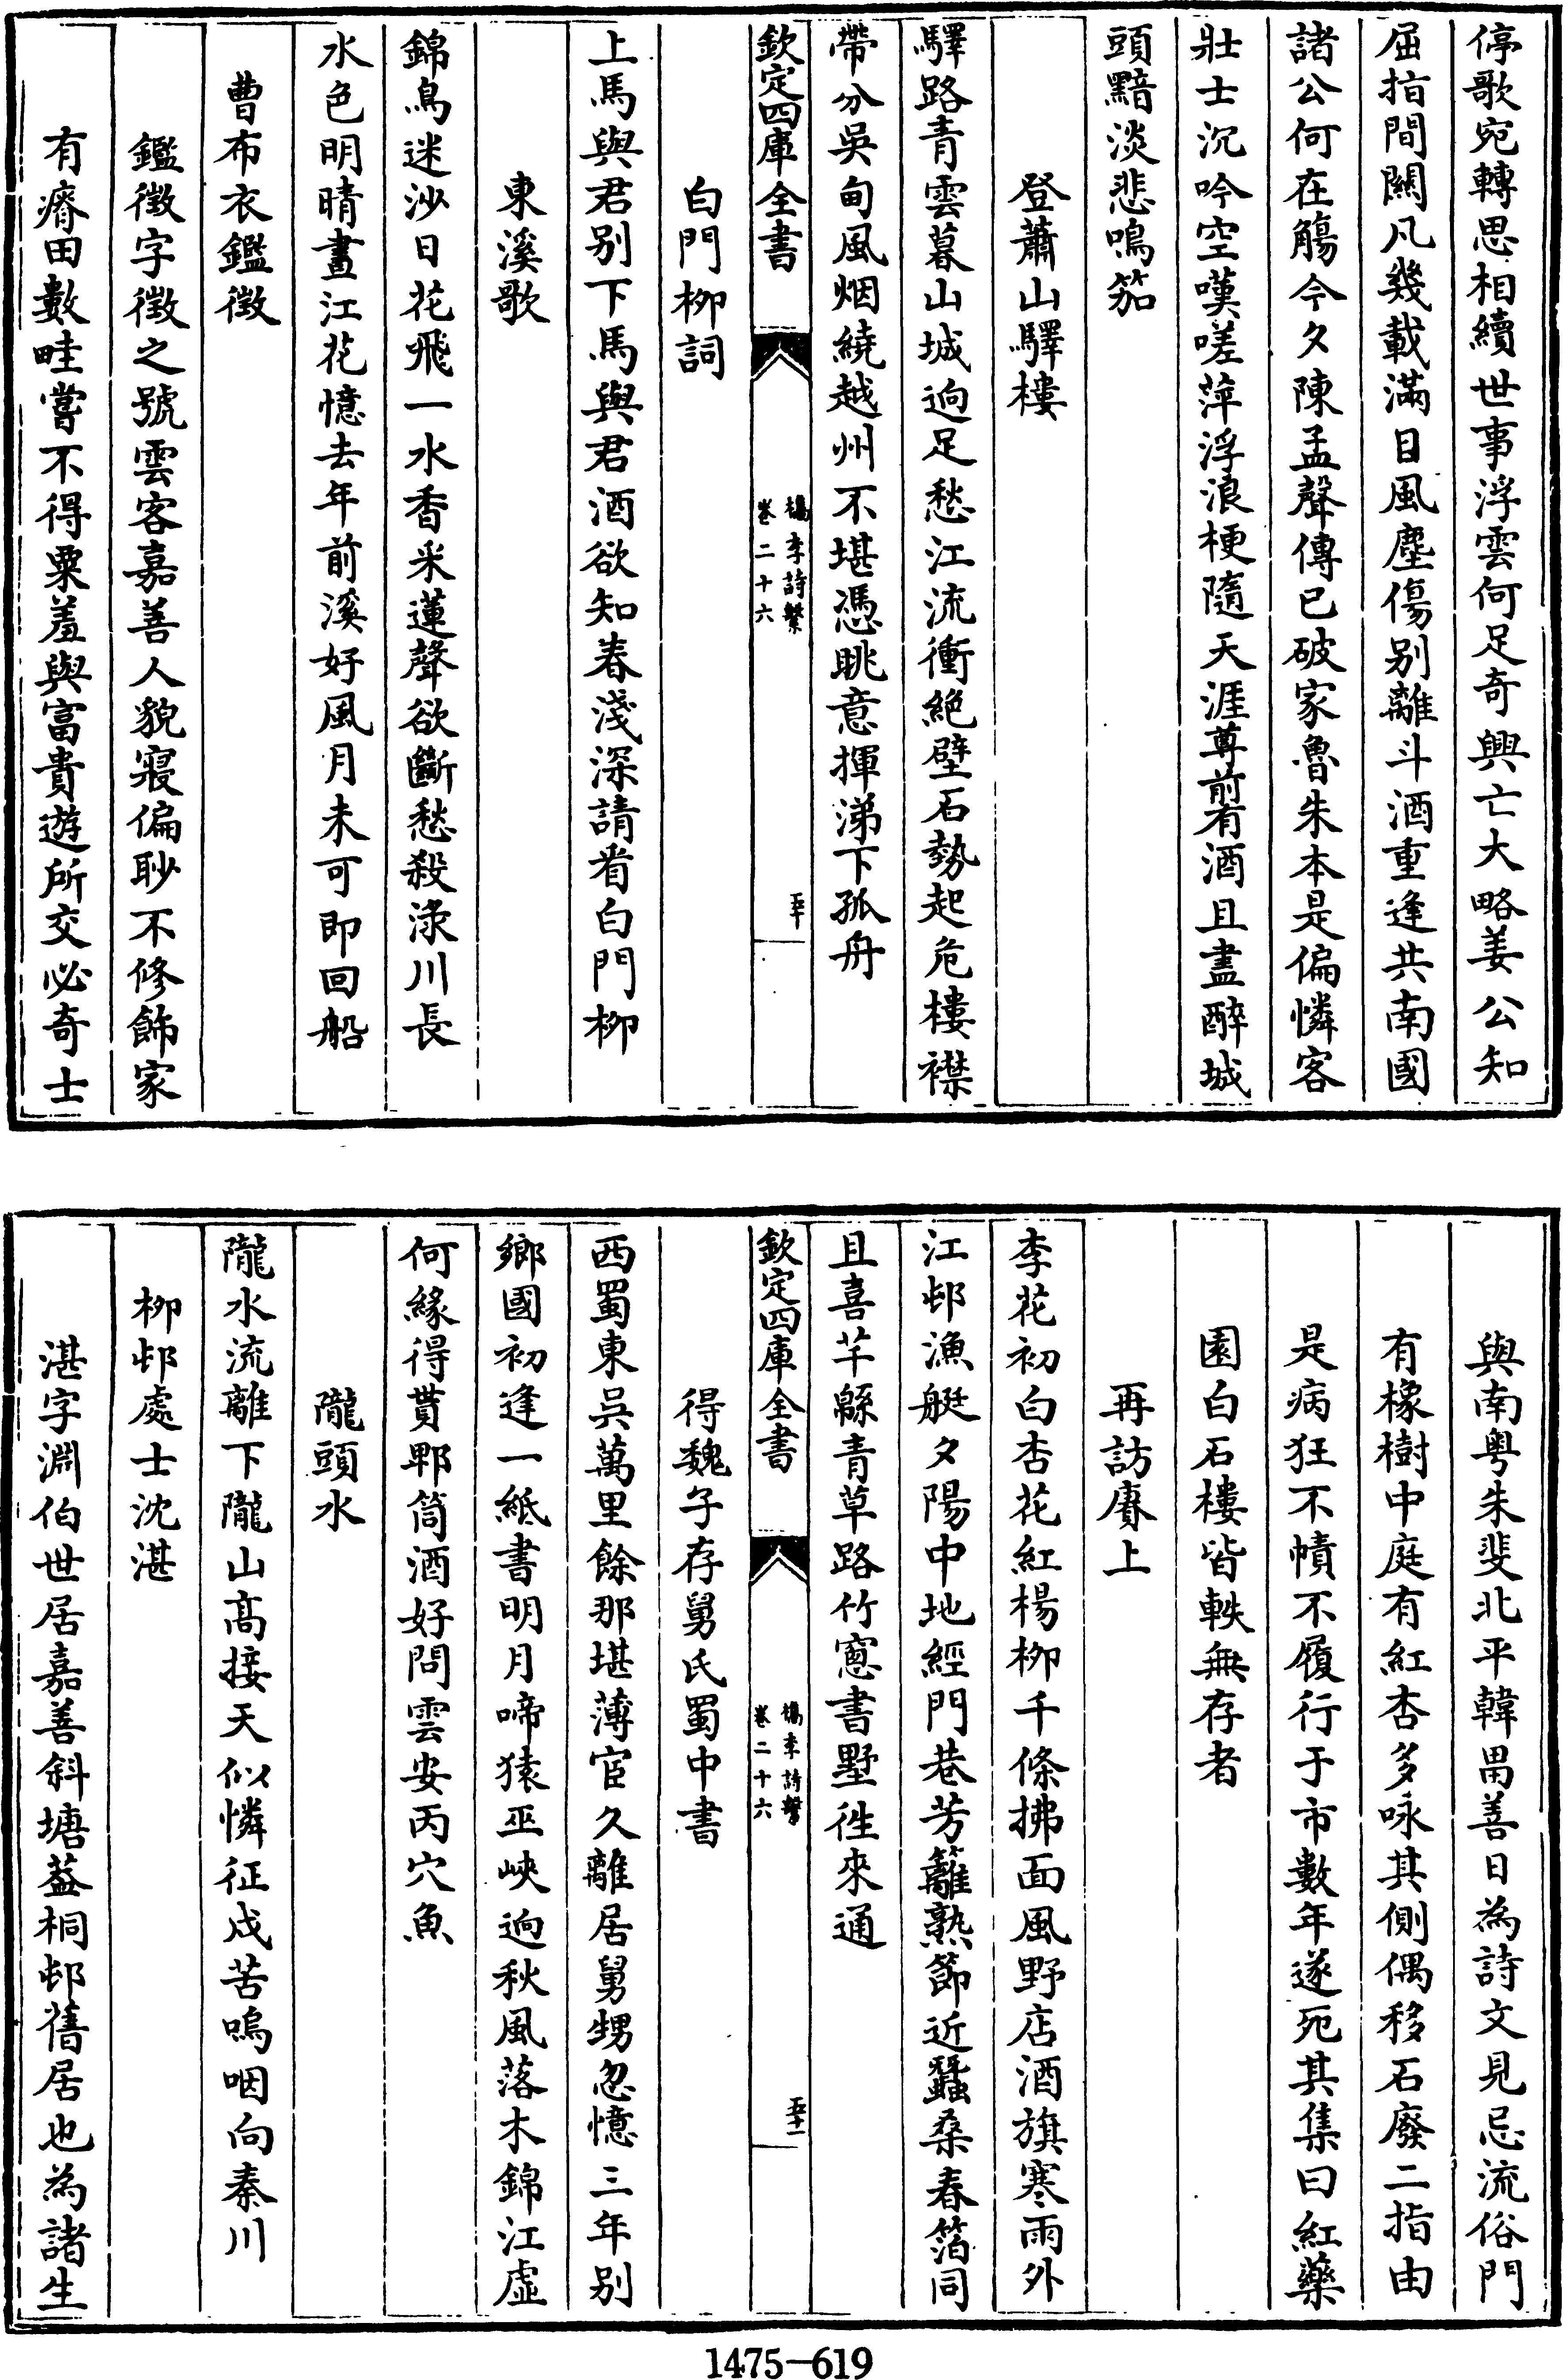 停歌宛轉思相續世事浮雲何足奇興亡大略姜公知
屈指間闗凡幾載滿目風塵傷别離斗酒重逢共南國
諸公何在觴今夕陳孟聲傳已破家魯朱本是偏憐客
壯士沉吟空嘆嗟萍浮浪梗隨天涯尊前有酒且盡醉城
頭黯淡悲鳴笳
登蕭山驛樓
驛路青雲暮山城逈足愁江流衝絶壁石勢起危樓襟
帶分吳甸風烟繞越州不堪憑眺意揮涕下孤舟
欽定四庫全書
檇李詩繫
卷二十六
五十
白門柳詞
上馬與君别下馬與君酒欲知春淺深請看白門柳
東溪歌
錦鳥迷沙日花飛一水香采蓮聲欲斷愁殺渌川長
水色明晴畫江花憶去年前溪好風月未可即回船
曹布衣鑑徵
鑑徵字徵之號雲客嘉善人貌寢偏眇不修飾家
有瘠田數畦嘗不得粟羞與富貴遊所交必奇士
與南粤朱斐北平韓畕善日為詩文見忌流俗門
有橡樹中庭有紅杏多咏其側偶移石廢二指由
是病狂不幘不履行于市數年遂死其集曰紅藥
園白石樓皆軼無存者
再訪賡上
李花初白杏花紅楊柳千條拂面風野店酒旗寒雨外
江邨漁艇夕陽中地經門巷芳籬熟節近蠶桑春箔同
且喜芊緜青草路竹窻書墅徃來通
欽定四庫全書
檇李詩繫
卷二十六
五十一
得魏子存舅氏蜀中書
西蜀東吳萬里餘那堪薄宦久離居舅甥忽憶三年别
鄉國初逢一紙書明月啼猿巫峽逈秋風落木錦江虛
何緣得貰郫筒酒好問雲安丙穴魚
隴頭水
隴水流離下隴山髙接天似憐征戍苦嗚咽向秦川
柳邨處士沈湛
湛字淵伯世居嘉善斜塘葢桐邨舊居也為諸生
1475—619